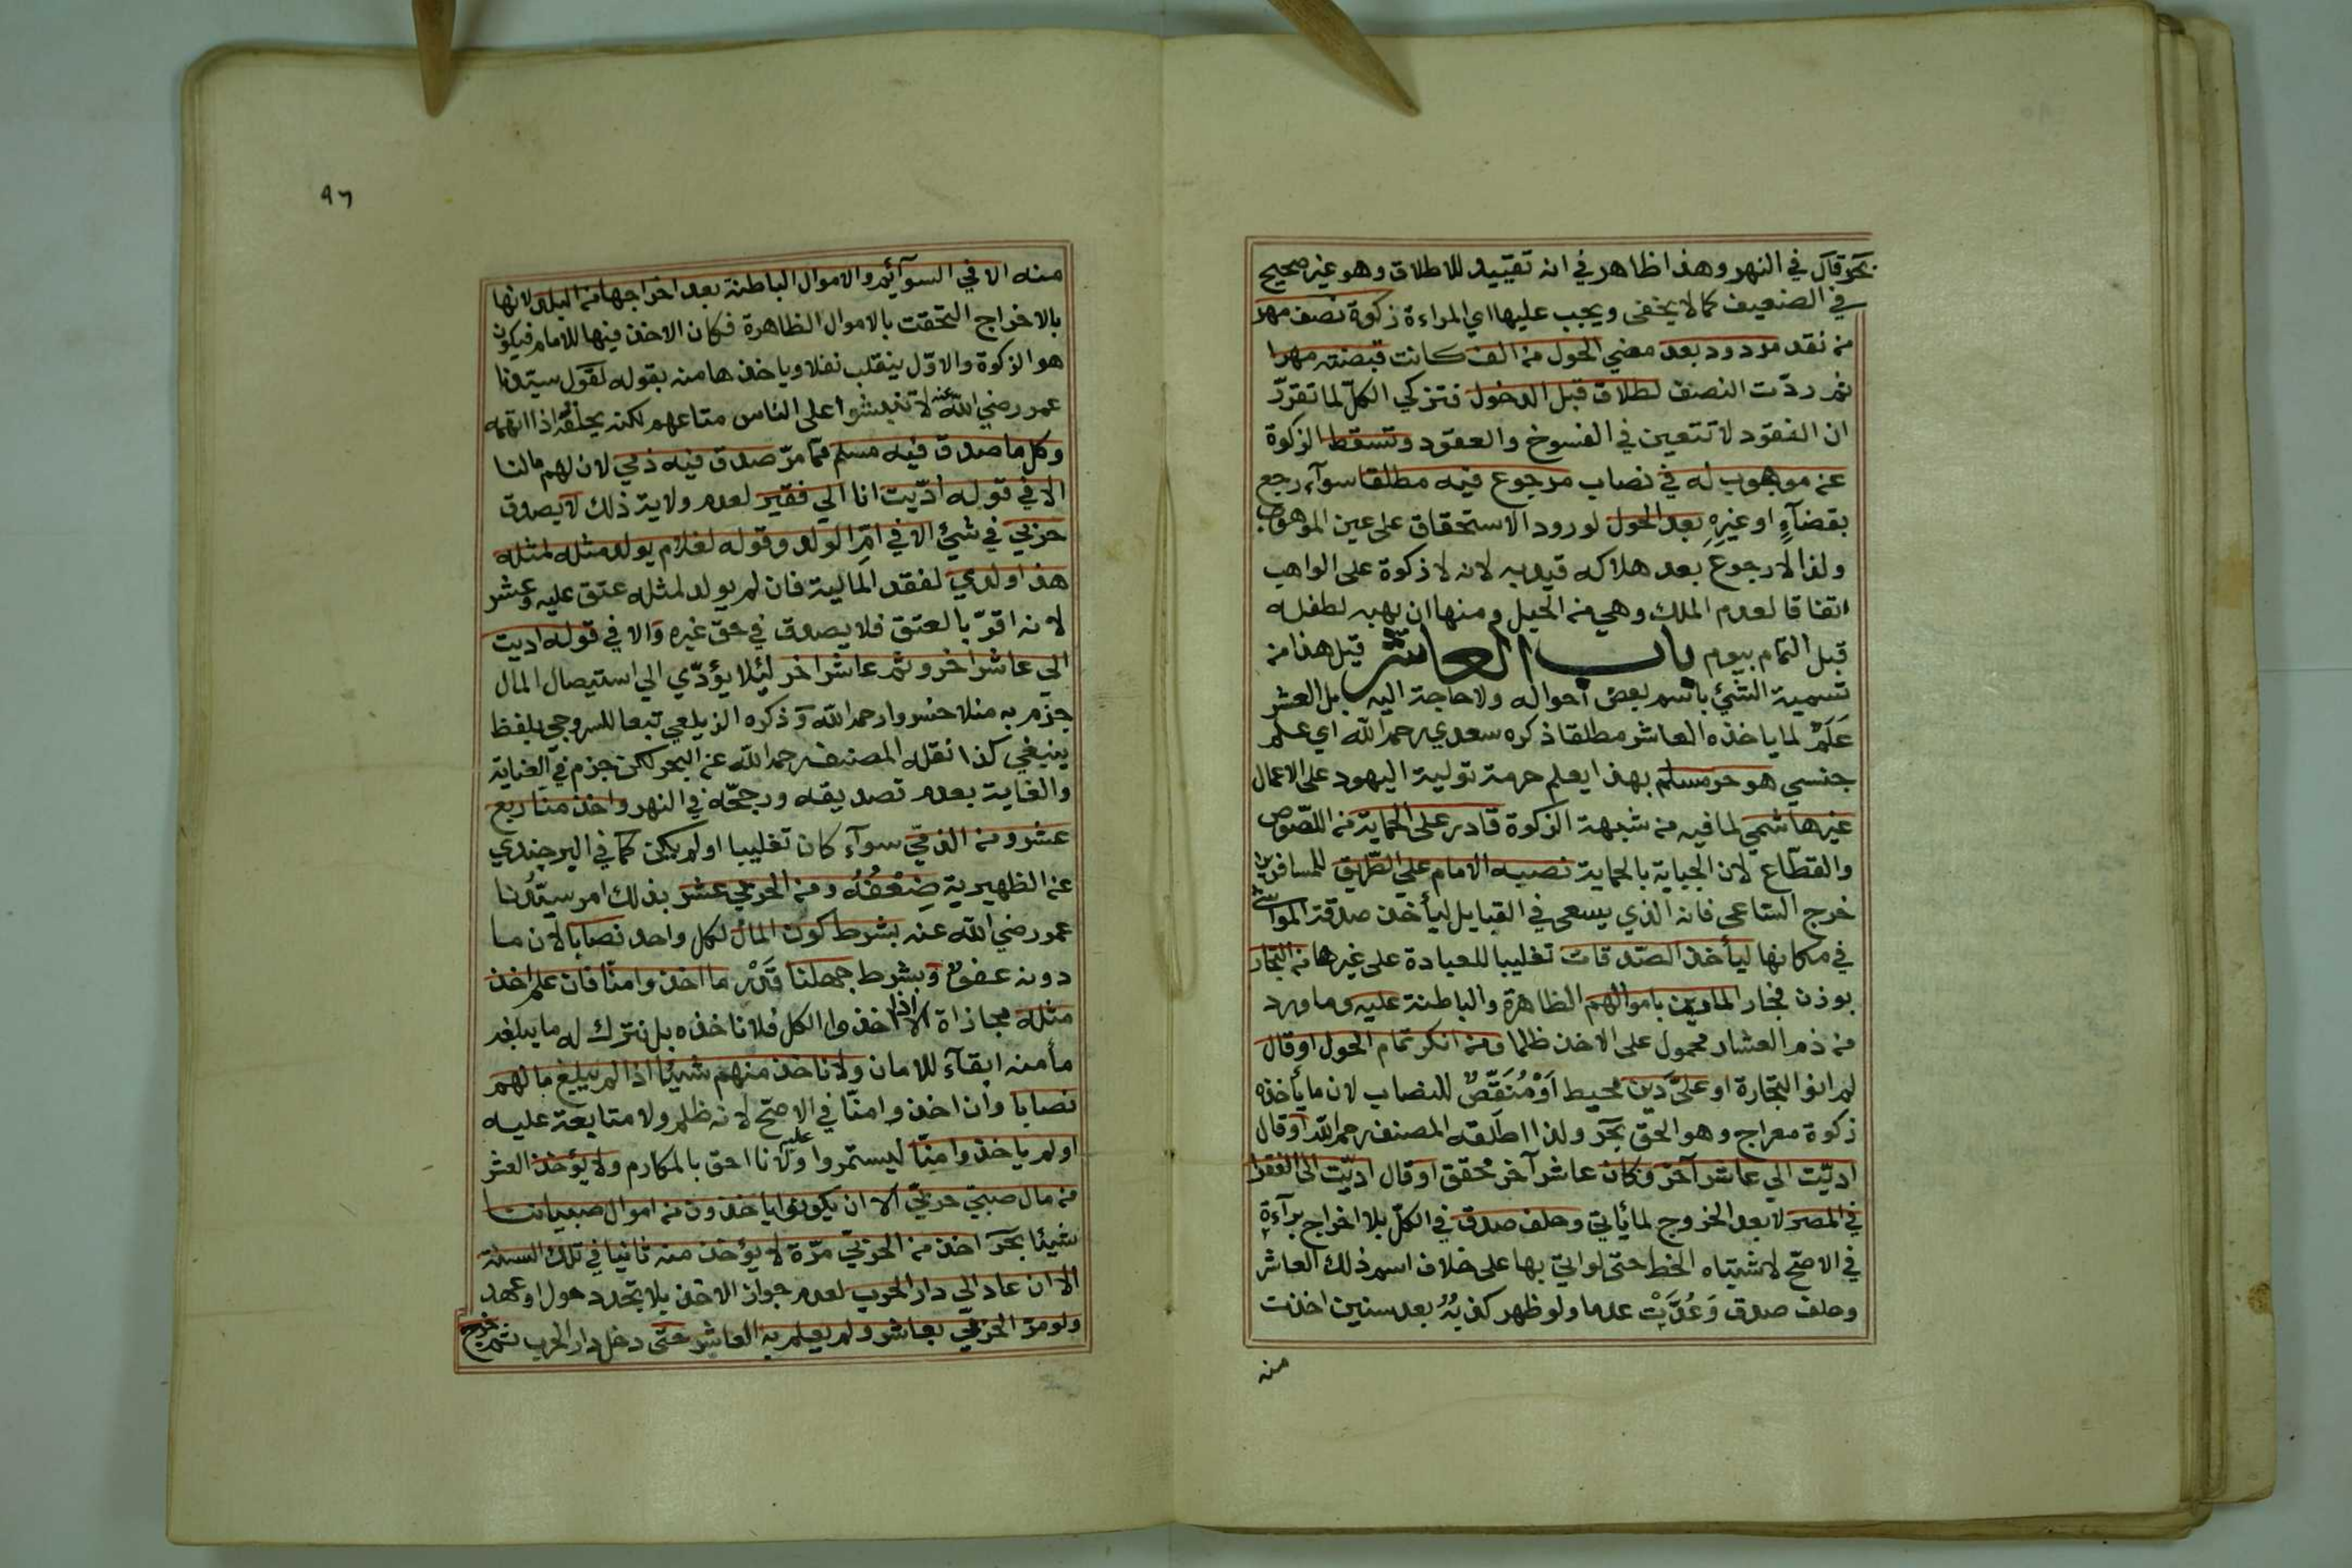 بحر قال في النهر وهذا ظاهر في انه تقييد للاطلاق وهو غير صحيح
في الضعيف كما لا يخفى ويجب عليها اي المراءة زكوة نصف مهر
من نقد مردود بعد مضي الحول من الف كانت قبضته مهرا
ثم ردّت النصف لطلاق قبل الدخول فتزكي الكلّ لما تقرّر
ان النقود لا تتعين في الفسوخ والعقود وتسقط الزكوة
عن موهوب له في نصاب مرجوع فيه مطلقا سوآء رجع
بقضآءٍ او غيرِهِ بعد الحول لورود الاستحقاق على عين الموهوب
ولذا لا رجوع بعد هلاكه قيد به لانه لا زكوة على الواهب
اتفاقا لعدم الملك وهي من الحيل ومنها ان يهبه لطفله
قبل التمام بيوم باب العاشر قيل هذا من
تسمية الشئ باسم بعض أحواله ولا حاجة اليه بل العشر
عَلَمٌ لما ياخذه العاشر مطلقا ذكره سعدي رحمه الله اي علم
جنسي هو حر مسلم بهذا يعلم حرمة تولية اليهود على الاعمال
غير هاشمي لما فيه من شبهة الزكوة قادر على الحماية من اللصوص
والقطّاع لان الجباية بالحماية نصبه الامام على الطّريق للمسافرين
خرج السّاعي فانه الذي يسعى في القبايل ليأخذ صدقة المواشي
في مكانها ليأخذ الصّدقات تغليبا للعبادة على غيرها من التجار
بوزن فجار المارين باموالهم الظاهرة والباطنة عليه وما ورد
من ذم العشار محمول على الاخذ ظلما فمن انكر تمام الحول او قال
لم انو التجارة او علىّ دَين محيط اَوْ مُنَقِّصٌ للنصاب لان ما يأخذه
زكوة معراج وهو الحق بحر ولذا اطلقه المصنف رحمه الله او قال
ادّيت الي عاشر آخر وكان عاشر آخر محقق او قال ادّيت الى الفقرا
في المصر لا بعد الخروج لما يأتي وحلف صدق في الكلّ بلا اخراج برآءةٍ
في الاصحّ لاشتباه الخط حتى لو اتي بها على خلاف اسم ذلك العاشر
وحلف صدق وَعُدَّتْ عدما ولو ظهر كذبُهُ بعد سنين اخذت
منه
٩٦
منه الا في السوآئم والاموال الباطنة بعد اخراجها من البلد لانها
بالاخراج التحقت بالاموال الظاهرة فكان الاخذ فيها للامام فيكون
هو الزكوة والاوّل ينقلب نفلا وياخذها منه بقوله لقول سيّدنا
عمر رضي الله عنه لا تنبشوا على الناس متاعهم لكنه يحلفُه اذا اتهمه
وكل ما صدق فيه مسلم ممّا مرّ صدق فيه ذمي لان لهم ما لنا
الا في قوله ادّيت انا الي فقير لعدم ولاية ذلك لا يصدق
حربي في شئ الا في امّ الولد وقوله لغلام يولد مثله لمثله
هذا ولدي لفقد المالية فان لم يولد لمثله عتق عليه وعشر
لانه اقرّ بالعتق فلا يصدق في حق غيره والا في قوله اديت
الي عاشر اخر وثم عاشر اخر لئلا يؤدّي الي استيصال المال
جزم به منلا خسرو رحمه الله وذكره الزيلعي تبعا للسروجي بلفظ
ينبغي كذا نقله المصنف رحمه الله عن البحر لكن جزم في العناية
والغاية بعدم تصديقه ورجحّه في النهر واخذ منّا ربع
عشر ومن الذمّي سوآء كان تغلبيا او لم يكن كما في البرجندي
عن الظهيرية ضِعْفُهُ ومن الحربي عشر بذلك امر سيّدنا
عمر رضي الله عنه بشرط كون المال لكل واحد نصابا لان ما
دونه عفوٌ وبشرط جهلنا قَدْرَ ما اخذوا منّا فان علم اخذ
مثله مجازاة الا اذا اخذوا الكل فلا ناخذه بل نترك له ما يبلغه
مأمنه ابقآء للامان ولا ناخذ منهم شيئا اذا لم يبلغ مالهم
نصابا وان اخذوا منّا في الاصحّ لانه ظلم ولا متابعة عليه
او لم ياخذوا منّا ليستمروا عليه ولانا احق بالمكارم ولا يؤخذ العشر
من مال صبيّ حربيّ الا ان يكونوا ياخذون من اموال صبياننا
شيئا بحر اخذ من الحربيّ مرّة لا يؤخذ منه ثانيا في تلك السنة
الا ان عاد الي دار الحرب لعدم جواز الاخذ بلا تجدد حول او عهد
ولو مرّ الحربي بعاشر ولم يعلم به العاشر حتى دخل دار الحرب ثم خرج